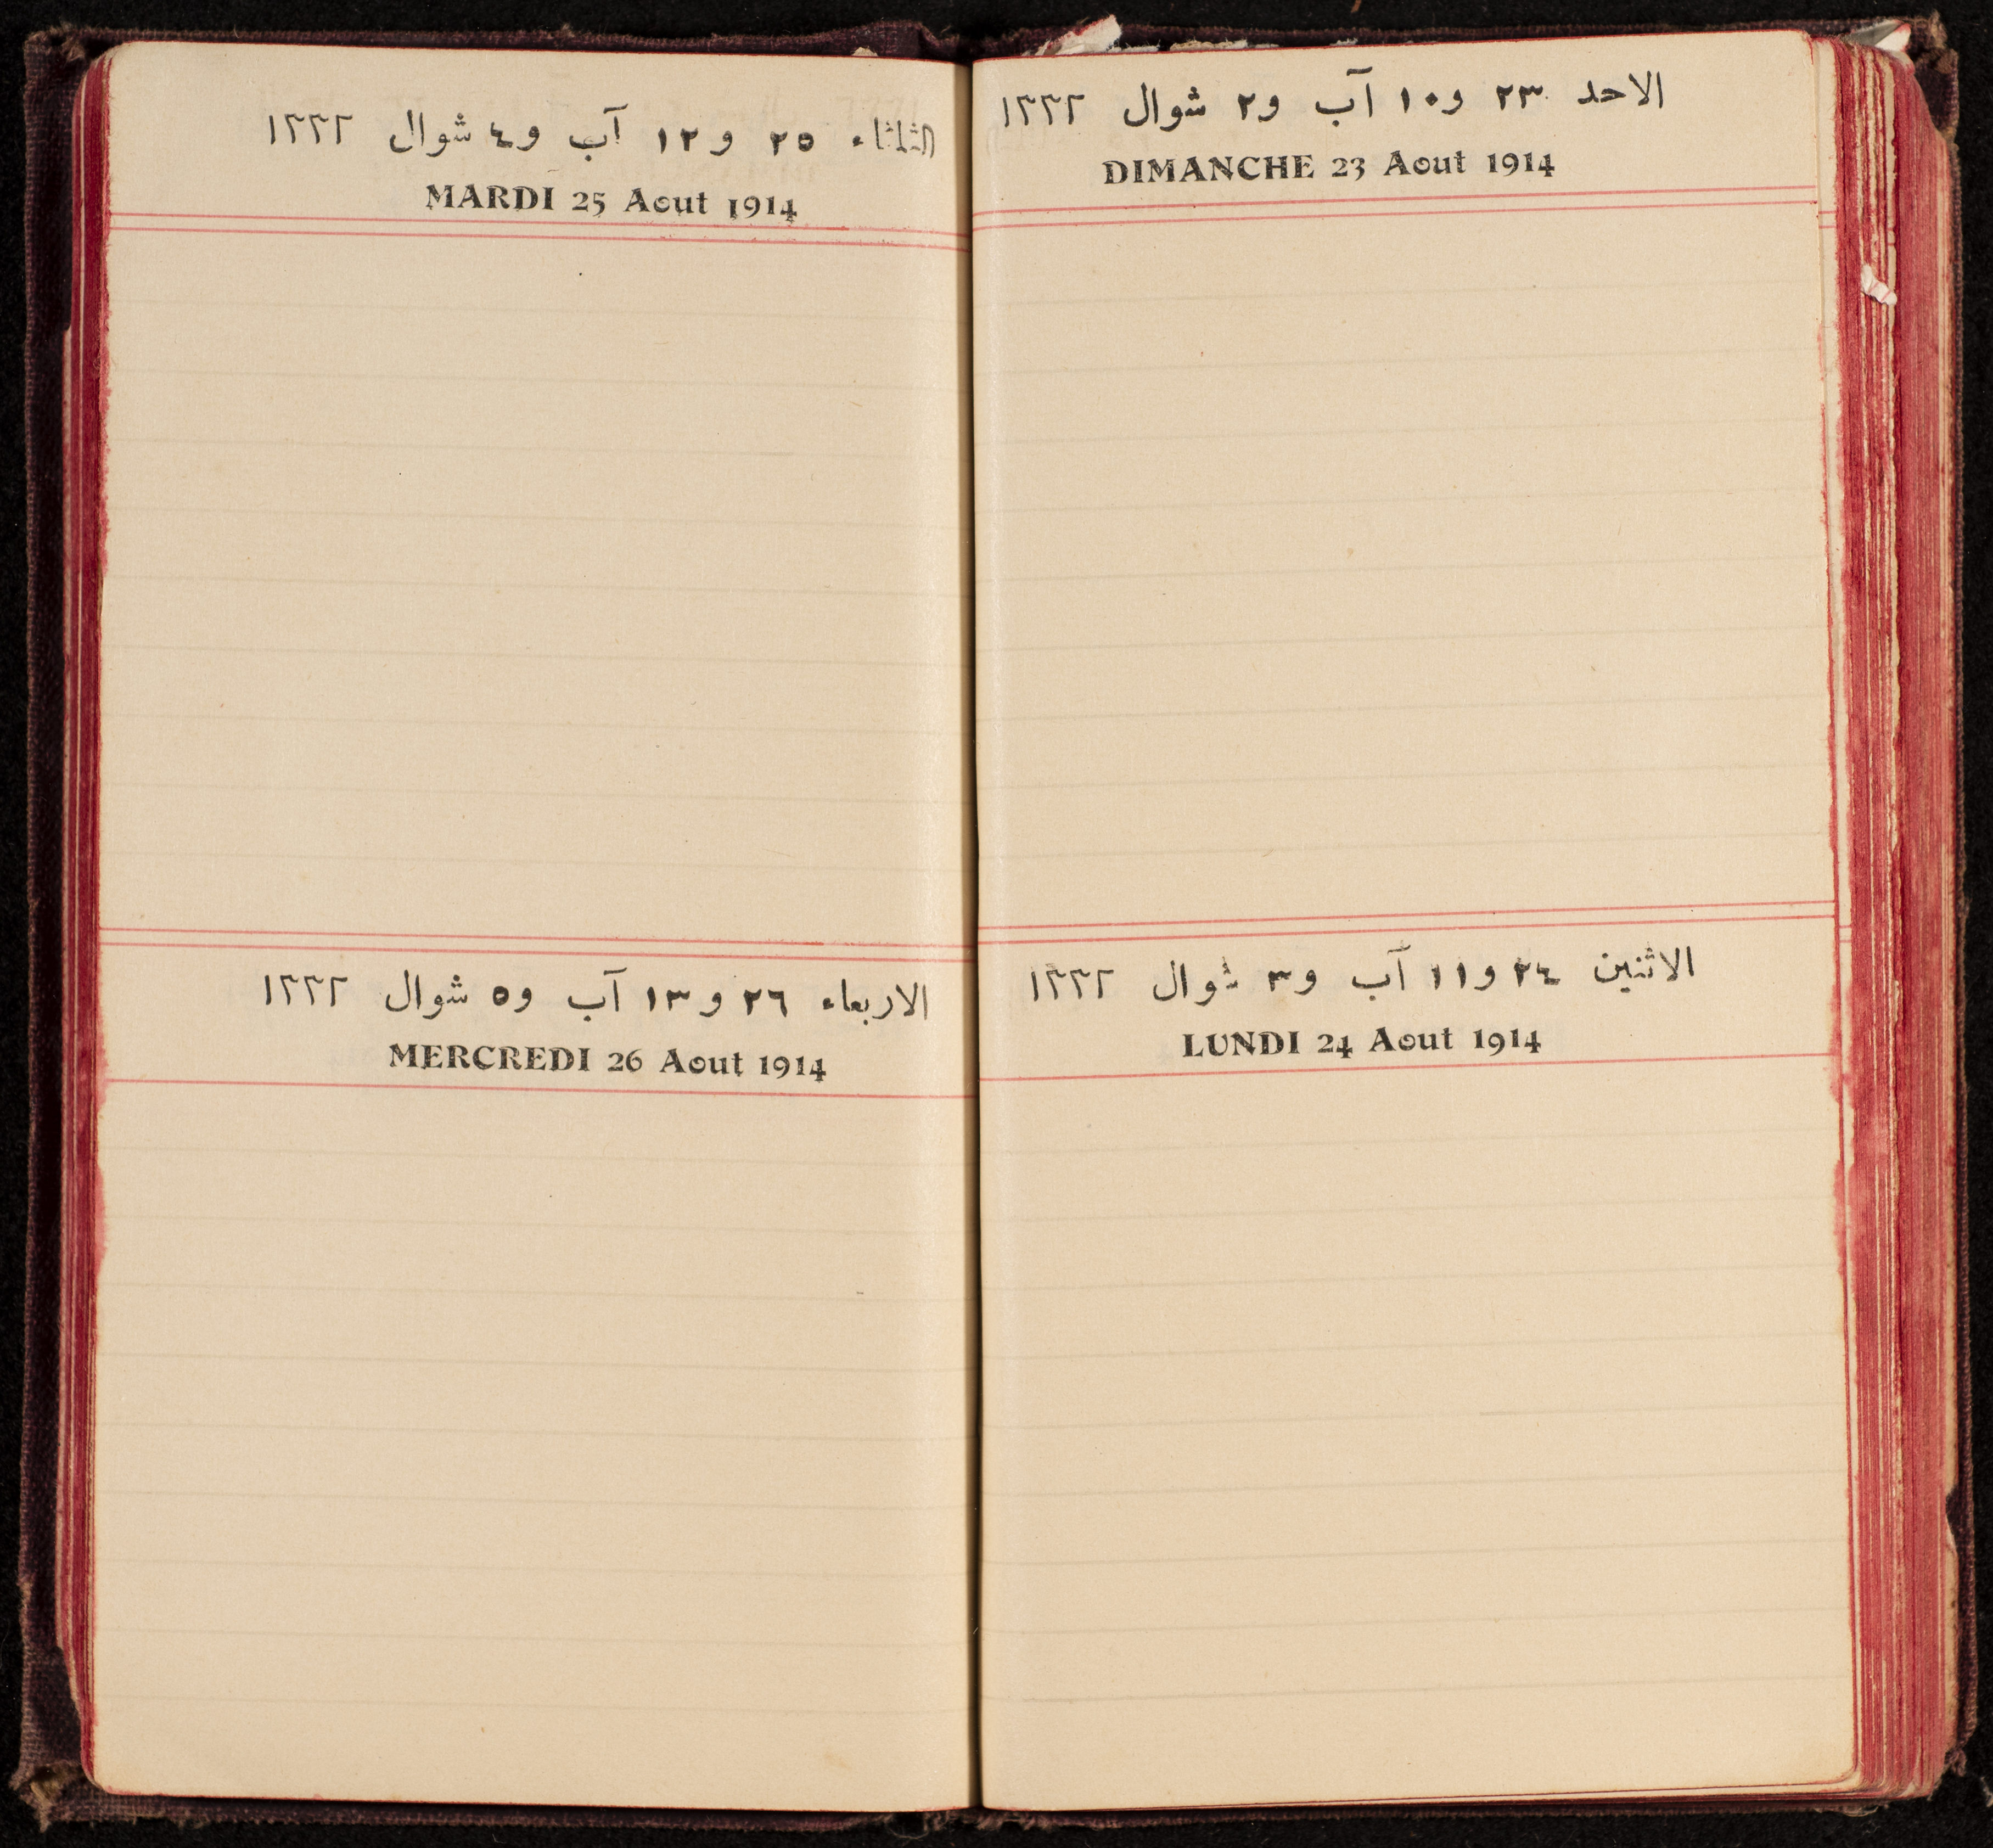 الاحد ٢٣ و١٠ آب و٢ شوال ١٣٣٢
DIMANCHE 23 Aout 1914
الاثنين ٢٤ و١١ آب و٣ شوال ١٣٣٢
LUNDI 24 Aout 1914
الثلثاء ٢٥ و١٢ آب و٤ شوال ١٣٣٢
MARDI 25 Aout 1914
الاربعاء ٢٦ و١٣ آب و٥ شوال ١٣٣٢
MERCREDI 26 Aout 1914